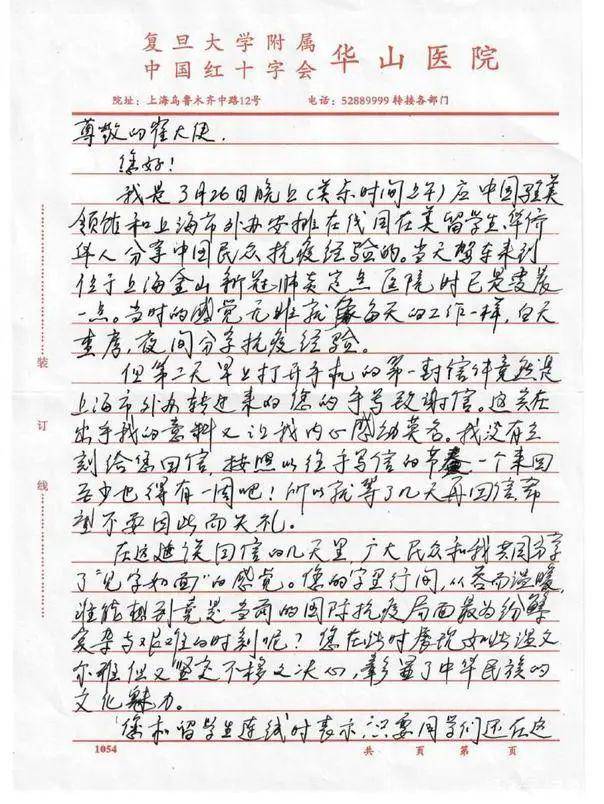 复旦大学附属
中国红十字会 华山医院
院址：上海乌鲁木齐中路12号 电话：52889999 转接各部门
尊敬的崔大使，
您好！
我是3月26日晚上（美东时间上午）应中国驻美
领馆和上海市外办安排在线同在美留学生、华侨
华人分享中国民众抗疫经验的。当天驾车来到
位于上海金山新冠肺炎定点医院时已是凌晨
一点。当时的感觉无非就像每天的工作一样，白天
查房，夜间分享抗疫经验。
但第二天早上打开手机的第一封信件竟然是
上海市外办转过来的您的手写致谢信。这实在
出乎我的意料又让我内心感动莫名。我没有立
刻给您回信，按照以往手写信的节奏一个来回
至少也得有一周吧！所以就等了几天再回信希
望不要因此而失礼。
在这延误回信的几天里，广大民众和我共同分享
了“见字如面”的感觉。您的字里行间，从容而温暖，
谁能想到竟是当前的国际抗疫局面最为纷繁
复杂与艰难的时刻呢？您在此时展现如此温文
尔雅但又坚定不移之决心，彰显了中华民族的
文化魅力。
您和留学生连线时表示，只要同学们还在这
装
订
线
1054 共 页 第 页